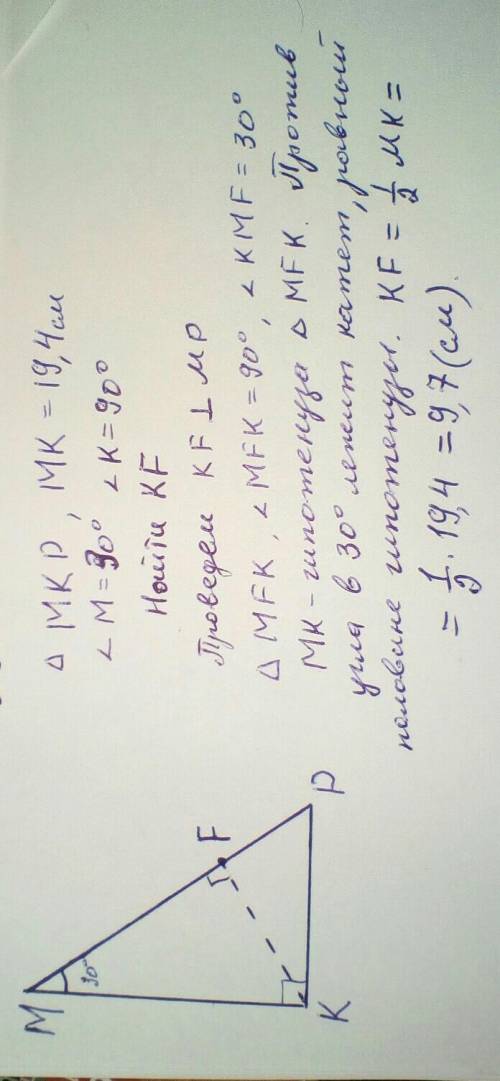 △ MKP, MK = 19,4 см
∠ M = 30° ∠ K = 90°
Найти KF
Проведем KF ⊥ MP
△ MFK, ∠ MFK = 90°, ∠ KMF = 30°
MK - гипотенуза △ MFK. Против
угла в 30° лежит катет, равный
половине гипотенузы. KF = 1/2 MK =
= 1/2 · 19,4 = 9,7 (см).
M
30°
F
P
K